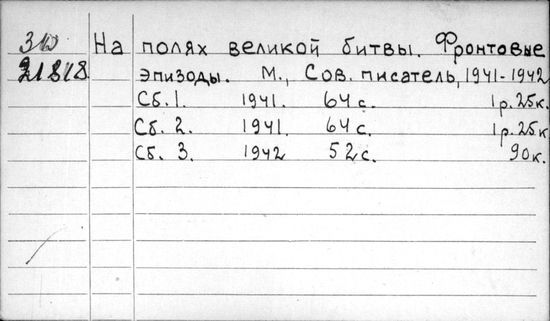 На полях великой битвы. Фронтовые
21818 эпизоды. М., Сов. писатель, 1941-1942
Сб. 1. 1941. 64 с. 1р. 25к.
Сб. 2. 1941. 64 с. 1р. 25к
Сб. 3. 1942 52 с. 90к.